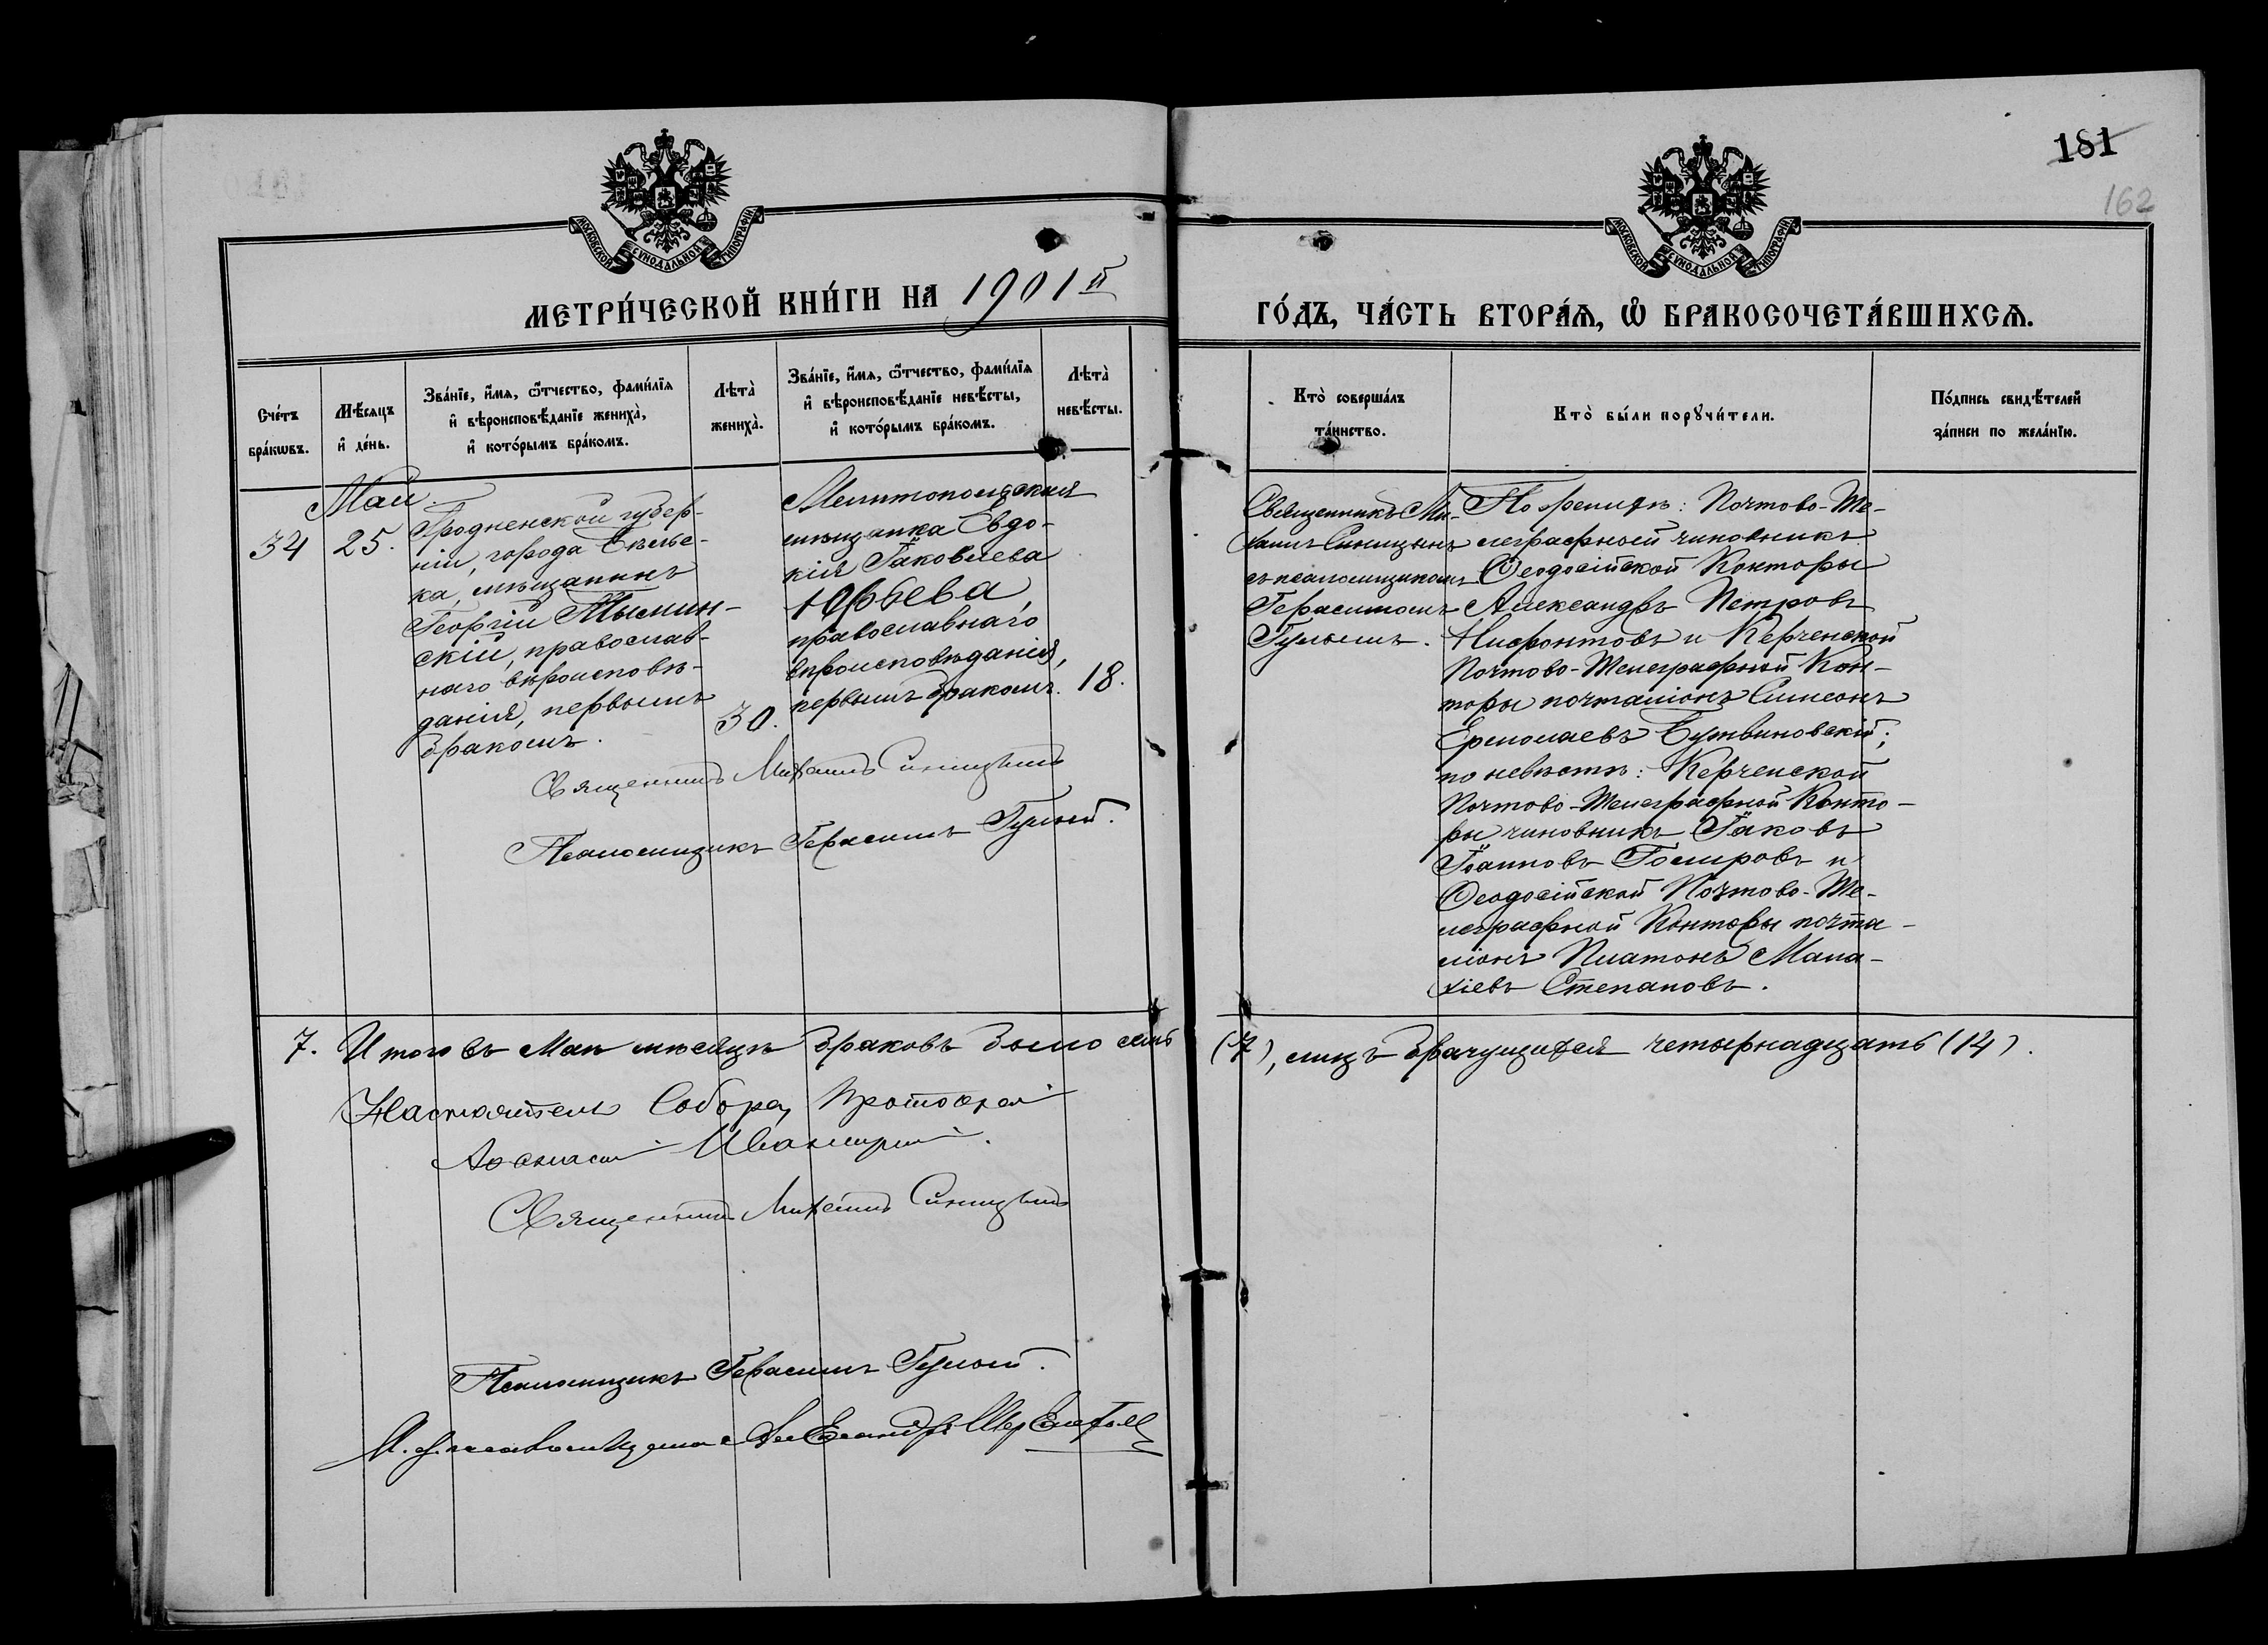 181
162
МОСКОВСКОЙ СѴНОДАЛЬНОЙ ТИПОГРАФІИ
МОСКОВСКОЙ СѴНОДАЛЬНОЙ ТИПОГРАФІИ
МЕТРИ́ЧЕСКОЙ КНИ́ГИ НА 1901й
ГО́ДЪ, ЧА́СТЬ ВТОРА́Ѧ, Ѡ҆ БРАКОСОЧЕТА́ВШИХСѦ.
Сче́тъ
бра́кѡвъ.
Мѣ́сѧцъ
и҆ де́нь.
Зва́нїе, и҆́мѧ, ѻ҆́тчество, фами́лїѧ
и҆ вѣроисповѣ́данїе жениха̀,
и҆ кото́рымъ бра́комъ.
Лѣта̀
жениха̀.
Зва́нїе, и҆́мѧ, ѻ҆́тчество, фами́лїѧ
и҆ вѣроисповѣ́данїе невѣ́сты,
и҆ кото́рымъ бра́комъ.
Лѣта̀
невѣ́сты.
Кто̀ соверша́лъ
та́инство.
Кто̀ бы́ли порꙋчи́тели.
По́дпись свидѣ́телей
за́писи по жела́нїю.
Май.
34
25.
Гродненской губер-
ніи, города Бѣльс-
ка, мѣщанинъ
Георгій Тымин-
скій, православ-
наго вѣроисповѣ-
данія, первымъ
бракомъ.
30.
Мелитопольская
мѣщанка Евдо-
кія Іаковлева
Юрьева,
православнаго
вѣроисповѣданія,
первымъ бракомъ.
18.
Священникъ Ми-
хаилъ Синицынъ
съ псаломщикомъ
Герасимомъ
Гулымъ.
По женихѣ: Почтово-Те-
леграфный чиновникъ
Ѳеодосійской Конторы
Александръ Петровъ
Нифонтовъ и Керченской
Почтово-Телеграфной Кон-
торы почталіонъ Симеонъ
Ермолаевъ Бутвиновскій;
по невѣстѣ: Керченской
Почтово-Телеграфной Конто-
ры чиновникъ Іаковъ
Іоанновъ Гомировъ и
Ѳеодосійской Почтово-Те-
леграфной Конторы почта-
ліонъ Платонъ Мала-
хіевъ Степановъ.
Священникъ Михаилъ Синицынъ
Псаломщикъ Герасимъ Гулый.
7. Итого въ Маѣ мѣсяцѣ браковъ было семь (7), лицъ брачущихся четырнадцать (14).
Настоятель Собора, Протоіерей
Священникъ Михаилъ Синицынъ
Псаломщикъ Герасимъ Гулый.